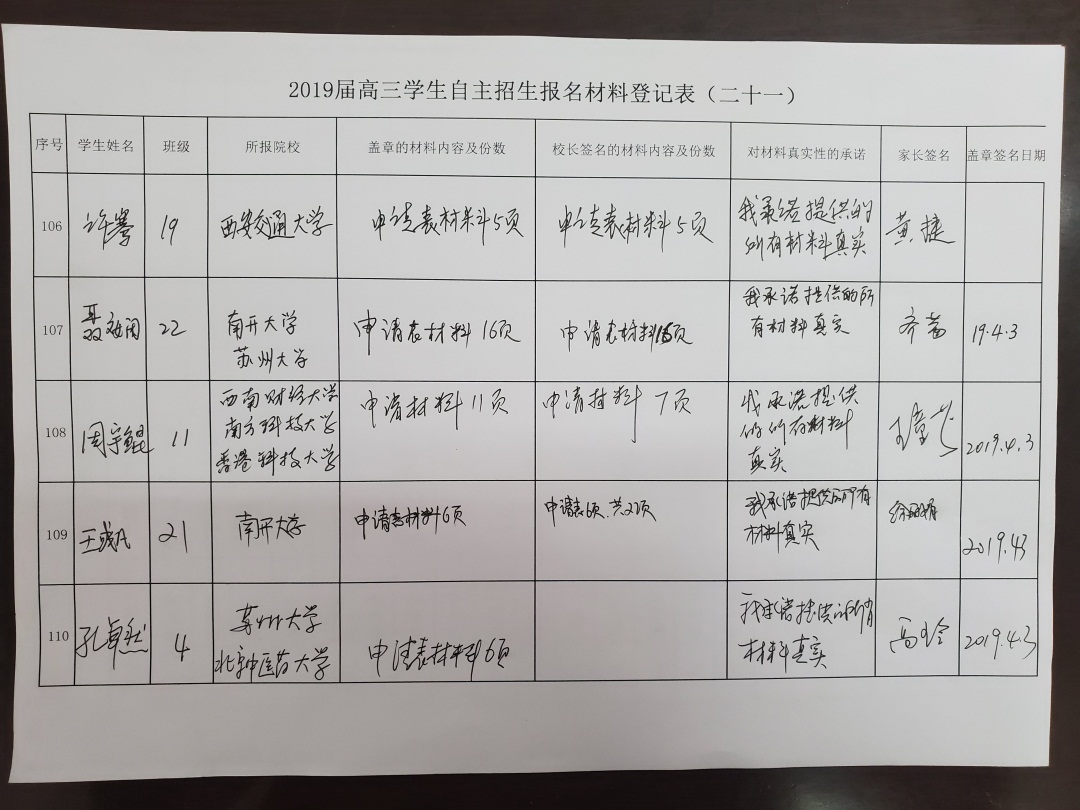 2019届高三学生自主招生报名材料登记表（二十一）
序号 学生姓名 班级 所报院校 盖章的材料内容及份数 校长签名的材料内容及份数 对材料真实性的承诺 家长签名 盖章签名日期
106 许骞 19 西安交通大学 申请表材料5页 申请表材料5页 我承诺提供的 黄捷
所有材料真实
107 22 南开大学 申请表材料16页 申请表材料16页 我承诺提供的所 齐蕾 19.4.3
苏州大学 有材料真实
108 周宇鲲 11 西南财经大学 申请材料11页 申请材料7页 我承诺提供 2019.4.3
南方科技大学 的所有材料
香港科技大学 真实
109 王彧凡 21 南开大学 申请表材料6页 申请表6页.共2项 我承诺提供的所有 2019.4.3
材料真实
110 孔卓然 4 苏州大学 申请表材料6页 我承诺提供的所有 高玲 2019.4.3
北京中医药大学 材料真实